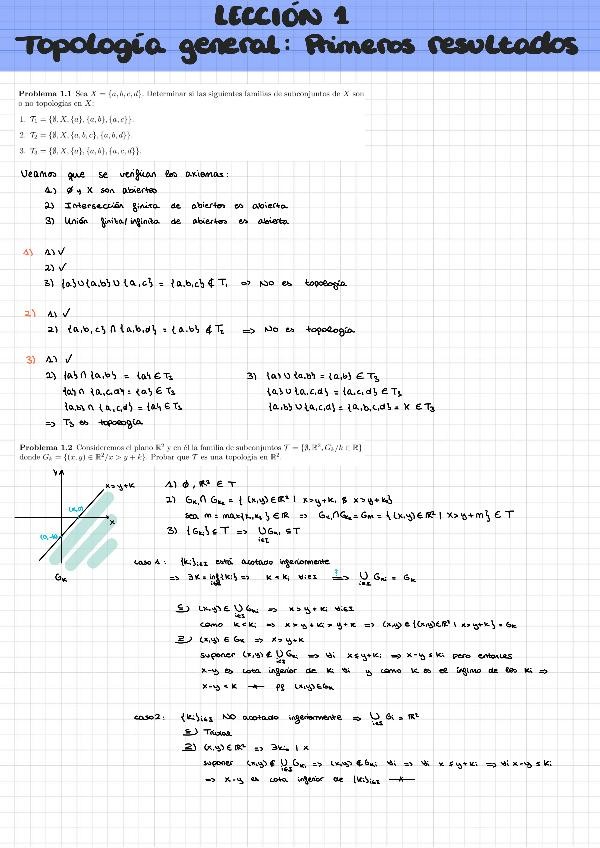 LECCIÓN 1
Topología general: Primeros resultados
Problema 1.1 Sea X = {a, b, c, d}. Determinar si las siguientes familias de subconjuntos de X son
o no topologías en X:
1. T₁ = {∅, X, {a}, {a, b}, {a, c}}.
2. T₂ = {∅, X, {a, b, c}, {a, b, d}}.
3. T₃ = {∅, X, {a}, {a, b}, {a, c, d}}.
Veamos que se verifican los axiomas:
1) ∅ y X son abiertos
2) Intersección finita de abiertos es abierta
3) Unión finita/infinita de abiertos es abierta
1) 1) ✓
2) ✓
3) {a} ∪ {a,b} ∪ {a,c} = {a,b,c} ∉ T₁ ⇒ No es topología
2) 1) ✓
2) {a,b,c} ∩ {a,b,d} = {a,b} ∉ T₂ ⇒ No es topología
3) 1) ✓
2) {a} ∩ {a,b} = {a} ∈ T₃ 3) {a} ∪ {a,b} = {a,b} ∈ T₃
{a} ∩ {a,c,d} = {a} ∈ T₃ {a} ∪ {a,c,d} = {a,c,d} ∈ T₃
{a,b} ∩ {a,c,d} = {a} ∈ T₃ {a,b} ∪ {a,c,d} = {a,b,c,d} = X ∈ T₃
⇒ T₃ es topología
Problema 1.2 Consideremos el plano ℝ² y en él la familia de subconjuntos T = {∅, ℝ², Gₖ/k ∈ ℝ}
donde Gₖ = {(x, y) ∈ ℝ²/x > y + k}. Probar que T es una topología en ℝ².
y
x=y+k
(k,0)
x
(0,-k)
Gₖ
1) ∅, ℝ² ∈ T
2) Gₖ₁ ∩ Gₖ₂ = {(x,y) ∈ ℝ² | x>y+k₁ & x>y+k₂}
sea m = max{k₁,k₂} ∈ ℝ ⇒ Gₖ₁ ∩ Gₖ₂ = Gₘ = {(x,y) ∈ ℝ² | x>y+m} ∈ T
3) {Gₖᵢ} ⊆ T ⇒ ∪ Gₖᵢ ∈ T
i∈I
caso 1: {kᵢ}ᵢ∈I está acotado inferiormente
⇒ ∃k = inf{kᵢ} ⇒ k < kᵢ ∀i∈I ⇒ ∪ Gₖᵢ = Gₖ
i∈I
⊆) (x,y) ∈ ∪ Gₖᵢ ⇒ x > y+kᵢ ∀i∈I
como k < kᵢ ⇒ x > y+kᵢ > y+k ⇒ (x,y) ∈ {(x,y)∈ℝ² | x>y+k} = Gₖ
⊇) (x,y) ∈ Gₖ ⇒ x > y+k
suponer (x,y) ∉ ∪ Gₖᵢ ⇒ ∀i x ≤ y+kᵢ ⇒ x-y ≤ kᵢ pero entonces
x-y es cota inferior de kᵢ ∀i y como k es el ínfimo de los kᵢ ⇒
x-y < k
caso 2: {kᵢ}ᵢ∈I NO acotado inferiormente ⇒ ∪ Gᵢ = ℝ²
i∈I
⊆) Trivial
⊇) (x,y) ∈ ℝ² ⇒
suponer (x,y) ∉ ∪ Gₖᵢ ⇒ (x,y) ∉ Gₖᵢ ∀i ⇒ ∀i x ≤ y+kᵢ ⇒ ∀i x-y ≤ kᵢ
⇒ x-y es cota inferior de {kᵢ}ᵢ∈I